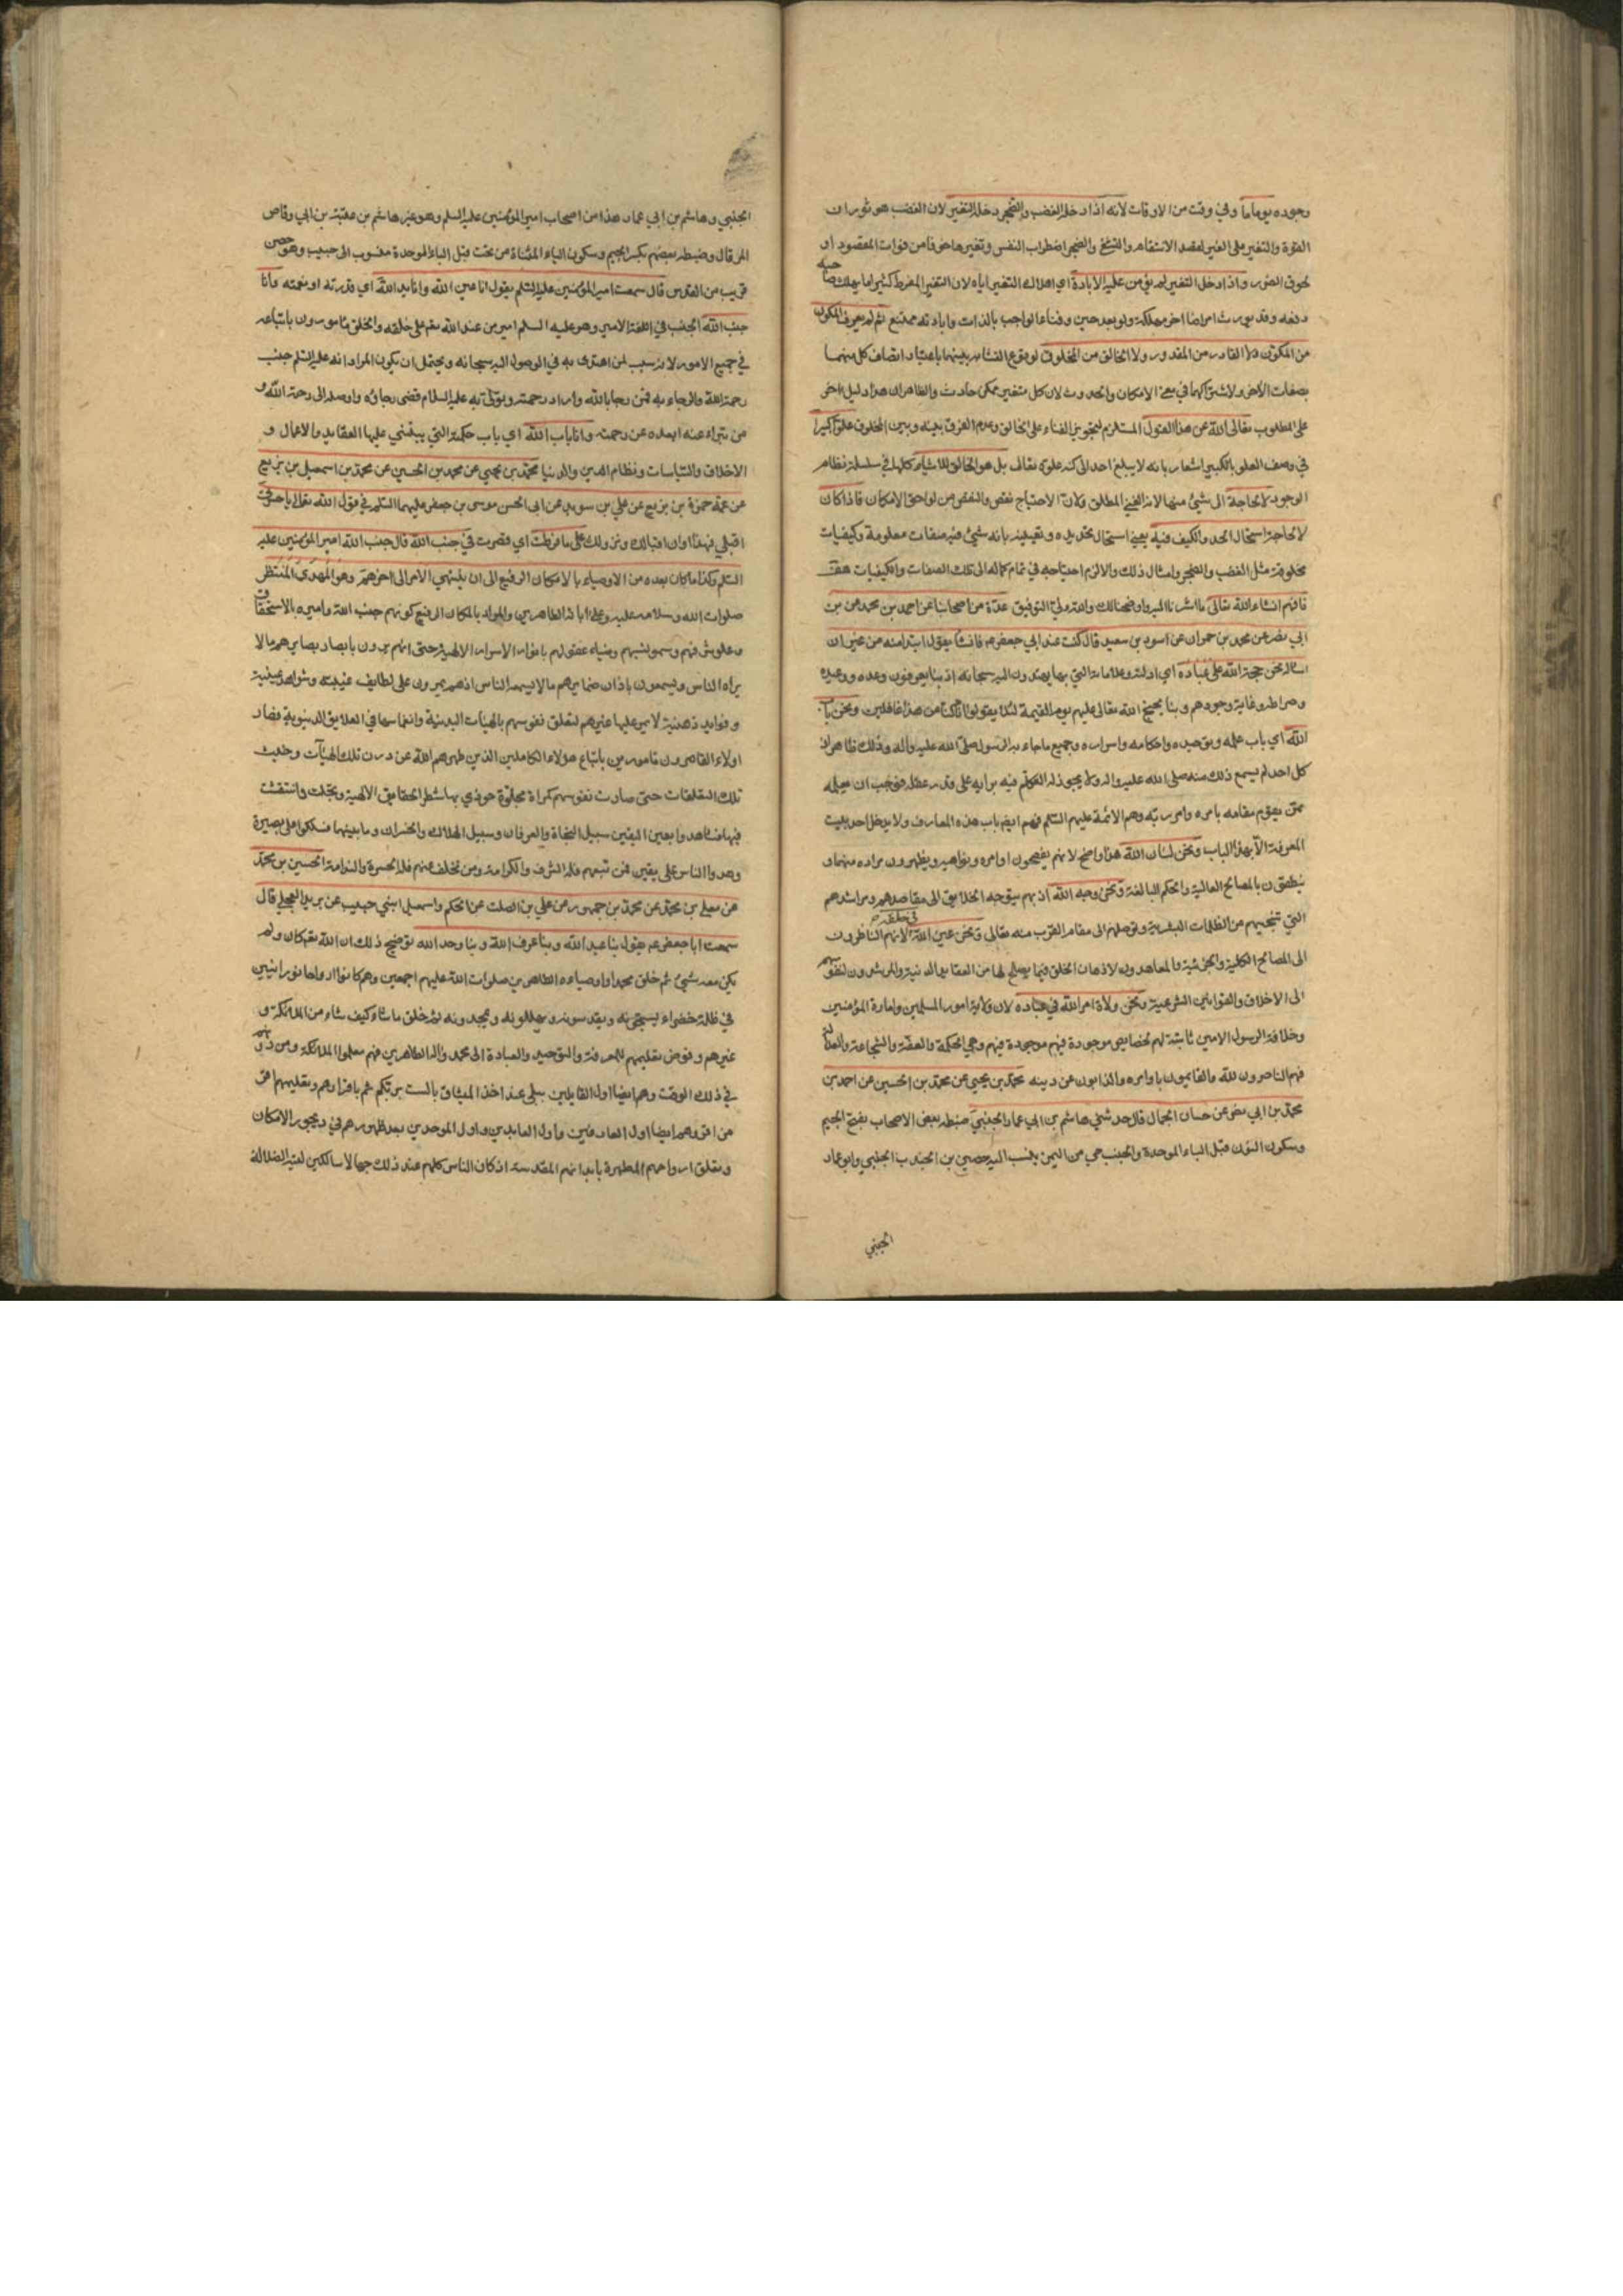 وجوده يوما ما وفي وقت من الاوقات لانه اذا دخله الغضب والضجر دخله التغير لان الغضب هو ثوران
القوة والتغير على الغير لقصد الانتقام والتشفي والضجر اضطراب النفس وتغيرها خوفا من فوات المقصود او
لحوق الضرر واذا دخله التغير لم يؤمن عليه الابادة اي اهلاك التغير اياه لان التغير المفرط كثيرا ما يهلك صاحبه
دفعه وقد يورث امراضا اخر مهلكة ولو بعد حين وفناء الواجب بالذات وابادته ممتنع ثم لم يعرف المكون
من المكون ولا القادر من المقدور ولا الخالق من المخلوق لوقوع التشابه بينهما باعتبار اتصاف كل منهما
بصفات الآخر ولاشتراكهما في معنى الامكان والحدوث لان كل متغير ممكن حادث والظاهر ان هذا دليل اخر
على المطلوب تعالى الله عن هذا القول المستلزم لتجويز الفناء على الخالق وعدم الفرق بينه وبين المخلوق علوا كبيرا
في وصف العلو بالكبير اشعار بانه لا يبلغ احد الى كنه علوه تعالى بل هو الخالق للاشياء كلها في سلسلة نظام
الوجود لا لحاجة الى شيئ منها لانه الغني المطلق ولان الاحتياج نقص والنقص من لواحق الامكان فاذا كان
لا لحاجة استحال الحد والكيف فيه يعني استحال تحديده وتعيينه بانه شيئ فيه صفات معلومة وكيفيات
مخلوقة مثل الغضب والضجر وامثال ذلك والا لزم احتياجه في تمام كماله الى تلك الصفات والكيفيات هف
فافهم انشاء الله تعالى ما اشرنا اليه واوضحنا لك والله ولي التوفيق عدة من اصحابنا عن احمد بن محمد عن بن
ابي نصر عن محمد بن حمران عن اسود بن سعيد قال كنت عند ابي جعفر عم فانشأ يقول ابتداء منه من غير ان
اساله نحن حجة الله على عباده اي ادلته وعلاماته التي بها يهتدون اليه سبحانه اذ بنا يعرفون وعده ووعيده
وصراطه وغاية وجودهم وبنا يحتج الله تعالى عليهم يوم القيمة لئلا يقولوا انا كنا عن هذا غافلين ونحن باب
الله اي باب علمه وتوحيده واحكامه واسراره وجميع ما جاء به الرسول صلى الله عليه واله وذلك ظاهر اذ
كل احد لم يسمع ذلك منه صلى الله عليه واله ولا يجوز له التكلم فيه برايه على قدر عقله فوجب ان يعلمه
ممن يقوم مقامه بامره وامر ربه وهم الائمة عليهم السلم فهم ايضا باب هذه المعارف ولا يدخل احد بيت
المعرفة الا بهذا الباب ونحن لسان الله هذا واضح لانهم يفصحون اوامره ونواهيه ويظهرون مراده منهما و
ينطقون بالمصالح العالية والحكم البالغة ونحن وجه الله اذ بهم يتوجه الخلايق الى مقاصدهم ومراشدهم
التي تنجيهم من الظلمات البشرية وتوصلهم الى مقام القرب منه تعالى ونحن عين الله في خلقه لانهم الناظرون
الى المصالح الكلية والجزئية والمعاهدون لاذهان الخلق فيما يصلح لها من العقايد الدينية والمرشدون لنفوسهم
الى الاخلاق والقوانين الشرعية ونحن ولاة امر الله في عباده لان ولاية امور المسلمين وامارة المؤمنين
وخلافة الرسول الامين ثابتة لهم لخصايص موجودة فيهم وهي الحكمة والعفة والشجاعة والعدالة
فهم الناصرون لله والقايمون باوامره والذابون عن دينه محمد بن يحيي عن محمد بن الحسين عن احمد بن
محمد بن ابي نصر عن حسان الجمال قال حدثني هاشم بن ابي عمار الجنبي ضبطه بعض الاصحاب بفتح الجيم
وسكون النون قبل الباء الموحدة والجنب حي من اليمن ينسب اليه حصين بن الجندب الجنبي وابو عمار
الجنبي
الجنبي وهاشم بن ابي عمار هذا من اصحاب امير المؤمنين عليه السلم وهو غير هاشم بن عقبة بن ابي وقاص
المرقال وضبطه بعضهم بكسر الجيم وسكون الياء المثناة من تحت قبل الباء الموحدة منسوب الى جيب وهو حصن
قريب من القدس قال سمعت امير المؤمنين عليه السلم يقول انا عين الله وانا يد الله اي قدرته او نعمته وانا
جنب الله الجنب في اللغة الامير وهو عليه السلم امير من عند الله تعم على خلقه والخلق مامورون باتباعه
في جميع الامور لانه سبب لمن اهتدى به في الوصول اليه سبحانه ويحتمل ان يكون المراد انه عليه السلم جنب
رحمة الله والرجاء به فمن رجا بالله واراد رحمته وتوكل به عليه السلام قضى رجاؤه واوصله الى رحمة الله و
من تبراء عنه ابعده عن رحمته وانا باب الله اي باب حكمته التي يبتني عليها العقايد والاعمال و
الاخلاق والسياسات ونظام الدين والدنيا محمد بن يحيي عن محمد بن الحسين عن محمد بن اسمعيل بن بزيع
عن عمه حمزة بن بزيع عن علي بن سويد عن ابي الحسن موسى بن جعفر عليهما السلم في قول الله تعالى يا حسرتى
اقبلي فهذا اوان اقبالك ونزولك على ما فرطت اي قصرت في جنب الله قال جنب الله امير المؤمنين عليه
السلم وكذا ما كان بعده من الاوصياء بالامكان الرفيع الى ان ينتهي الامر الى اخرهم وهو المهدي المنتظر
صلوات الله وسلامه عليه وعلى ابائه الطاهرين والمراد بالمكان الرفيع كونهم جنب الله واميره بالاستحقاق
وعلو شرفهم وسمو نسبهم وضياء عقولهم بانوار الاسرار الالهية حتى انهم يرون بابصار بصايرهم ما لا
يراه الناس ويسمعون باذان ضمايرهم ما لا يسمعه الناس اذ هم يمرون على لطايف غيبية وشواهد عينية
وفوايد ذهنية لا يمر عليها غيرهم لتعلق نفوسهم بالهيات البدنية وانغماسها في العلايق الدنيوية فصار
اولاء القاصرون مامورين باتباع هؤلاء الكاملين الذين طهرهم الله عن درن تلك الهيآت وخبث
تلك التعلقات حتى صارت نفوسهم كمراة مجلوة حوذي بها شطر الحقايق الالهية وتجلت وانتقشت
فيها فشاهدوا بعين اليقين سبيل النجاة والعرفان وسبيل الهلاك والخسران وما بينهما فسلكوا على بصيرة
وهدوا الناس على يقين فمن تبعهم فله الشرف والكرامة ومن تخلف عنهم فله الحسرة والندامة الحسين بن محمد
عن معلى بن محمد عن محمد بن جمهور عن علي بن الصلت عن الحكم واسمعيل ابني حبيب عن بريد العجلي قال
سمعت ابا جعفر عم يقول بنا عبد الله وبنا عرف الله وبنا وحد الله توضيح ذلك ان الله تعم كان ولم
يكن معه شيئ ثم خلق محمدا واوصياءه الطاهرين صلوات الله عليهم اجمعين وهم كانوا ارواحا نورانيين
في ظلة خضراء يسبحونه ويقدسونه ويهللونه ويمجدونه ثم خلق ما شاء كيف شاء من الملائكة و
غيرهم وفوض تعليمهم للمعرفة والتوحيد والعبادة الى محمد واله الطاهرين فهم معلموا الملائكة ومن
في ذلك الوقت وهم ايضا اول القايلين ببلى عند اخذ الميثاق بالست بربكم ثم باقرارهم وتعليمهم اقر
من اقر وهم ايضا اول العارفين واول العابدين واول الموحدين بعد ظهورهم في ديجور الامكان
وتعلق ارواحهم المطهرة بابدانهم المقدسة اذ كان الناس كلهم عند ذلك جهالا سالكين لتيه الضلالة